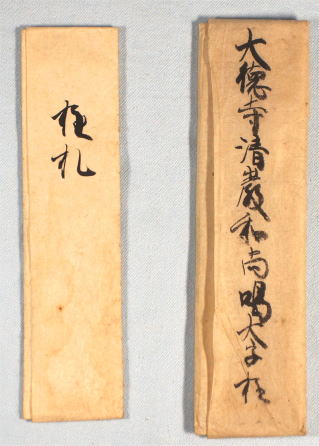 大徳寺清巌和尚喝大字極
極札